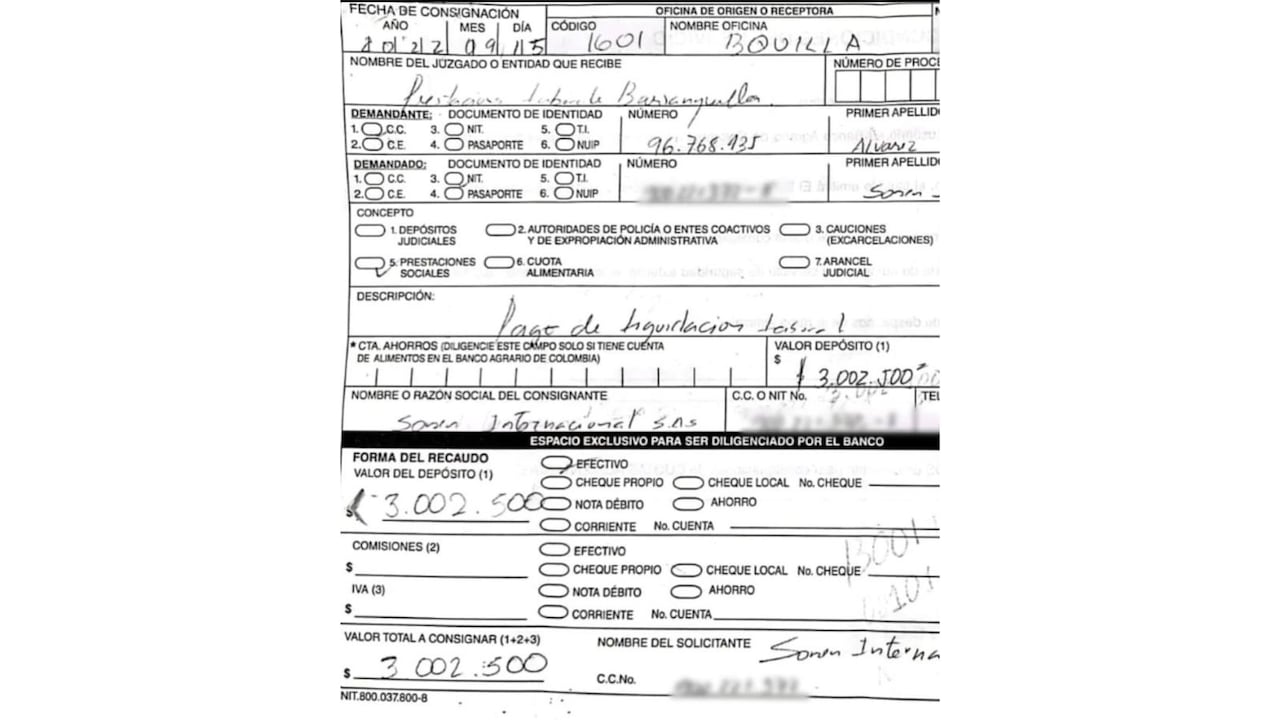 FECHA DE CONSIGNACIÓN
OFICINA DE ORIGEN O RECEPTORA
AÑO MES DÍA CÓDIGO NOMBRE OFICINA
2022 09 15 1601 BQUILLA
NOMBRE DEL JUZGADO O ENTIDAD QUE RECIBE NÚMERO DE PROCE
Barranquilla
DEMANDANTE: DOCUMENTO DE IDENTIDAD NÚMERO PRIMER APELLIDO
1. C.C. 3. NIT. 5. T.I.
2. C.E. 4. PASAPORTE 6. NUIP 96.768.935 Alvarez
DEMANDADO: DOCUMENTO DE IDENTIDAD NÚMERO PRIMER APELLIDO
1. C.C. 3. NIT. 5. T.I.
2. C.E. 4. PASAPORTE 6. NUIP Sonen
CONCEPTO
1. DEPÓSITOS JUDICIALES 2. AUTORIDADES DE POLICÍA O ENTES COACTIVOS Y DE EXPROPIACIÓN ADMINISTRATIVA 3. CAUCIONES (EXCARCELACIONES)
5. PRESTACIONES SOCIALES 6. CUOTA ALIMENTARIA 7. ARANCEL JUDICIAL
DESCRIPCIÓN:
Pago de liquidacion
* CTA. AHORROS (DILIGENCIE ESTE CAMPO SOLO SI TIENE CUENTA DE ALIMENTOS EN EL BANCO AGRARIO DE COLOMBIA) VALOR DEPÓSITO (1)
$ 3.002.500
NOMBRE O RAZÓN SOCIAL DEL CONSIGNANTE C.C. O NIT No. TEL
Sonen Internacional sas
ESPACIO EXCLUSIVO PARA SER DILIGENCIADO POR EL BANCO
FORMA DEL RECAUDO
VALOR DEL DEPÓSITO (1) EFECTIVO
CHEQUE PROPIO CHEQUE LOCAL No. CHEQUE
$ 3.002.500 NOTA DÉBITO AHORRO
CORRIENTE No. CUENTA
COMISIONES (2) EFECTIVO
$ CHEQUE PROPIO CHEQUE LOCAL No. CHEQUE
IVA (3) NOTA DÉBITO AHORRO
$ CORRIENTE No. CUENTA
VALOR TOTAL A CONSIGNAR (1+2+3) NOMBRE DEL SOLICITANTE Sonen Interna
$ 3 002.500 C.C.No.
NIT.800.037.800-8